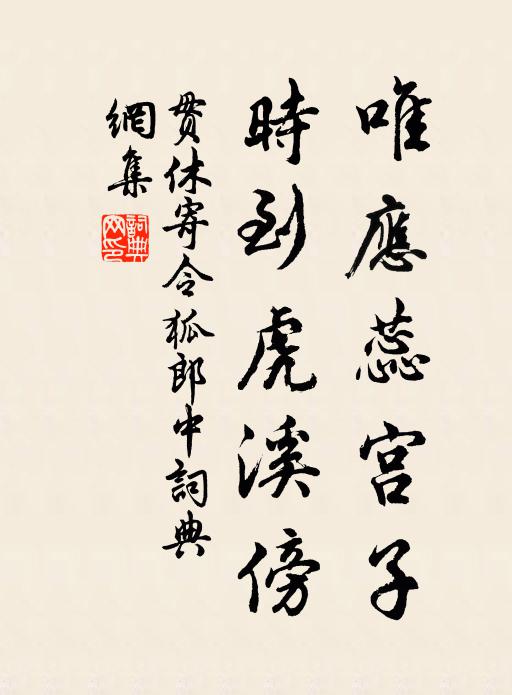 唯應蕊宮子
時到虎溪傍
貫休寄令狐郎中詞典
網集
詞典網印